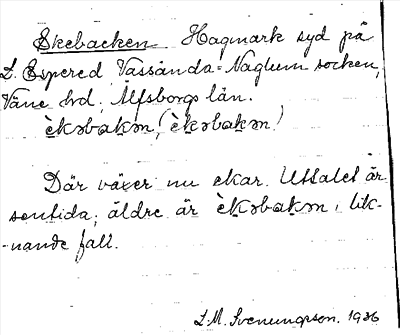 Ekebacken Hagmark syd på
L. Espered Vassända-Naglum socken,
Väne hrd, Älfsborgs län.
èkəbakən, (èkəbakən)
Där växer nu ekar. Uttalet är
sentida; äldre är èkəbakən, lik-
-nande fall.
L.M. Svenungsson. 1936